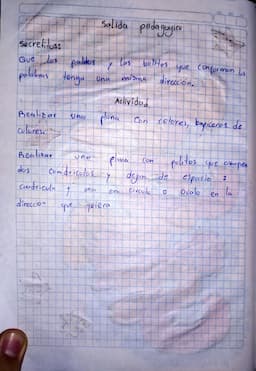 Salida pedagogica
Secretitos:
Que los palitos y las bolitas que conforman las
palabras tenga una misma dirección.
Actividad
Realizar una plana con colores, lapiceros de
colores.
Realizar una plana con palitos que ocupen
dos cuadriculas y dejen de espacio 1
cuadricula y con un circulo o ovalo en la
direccion que quiera